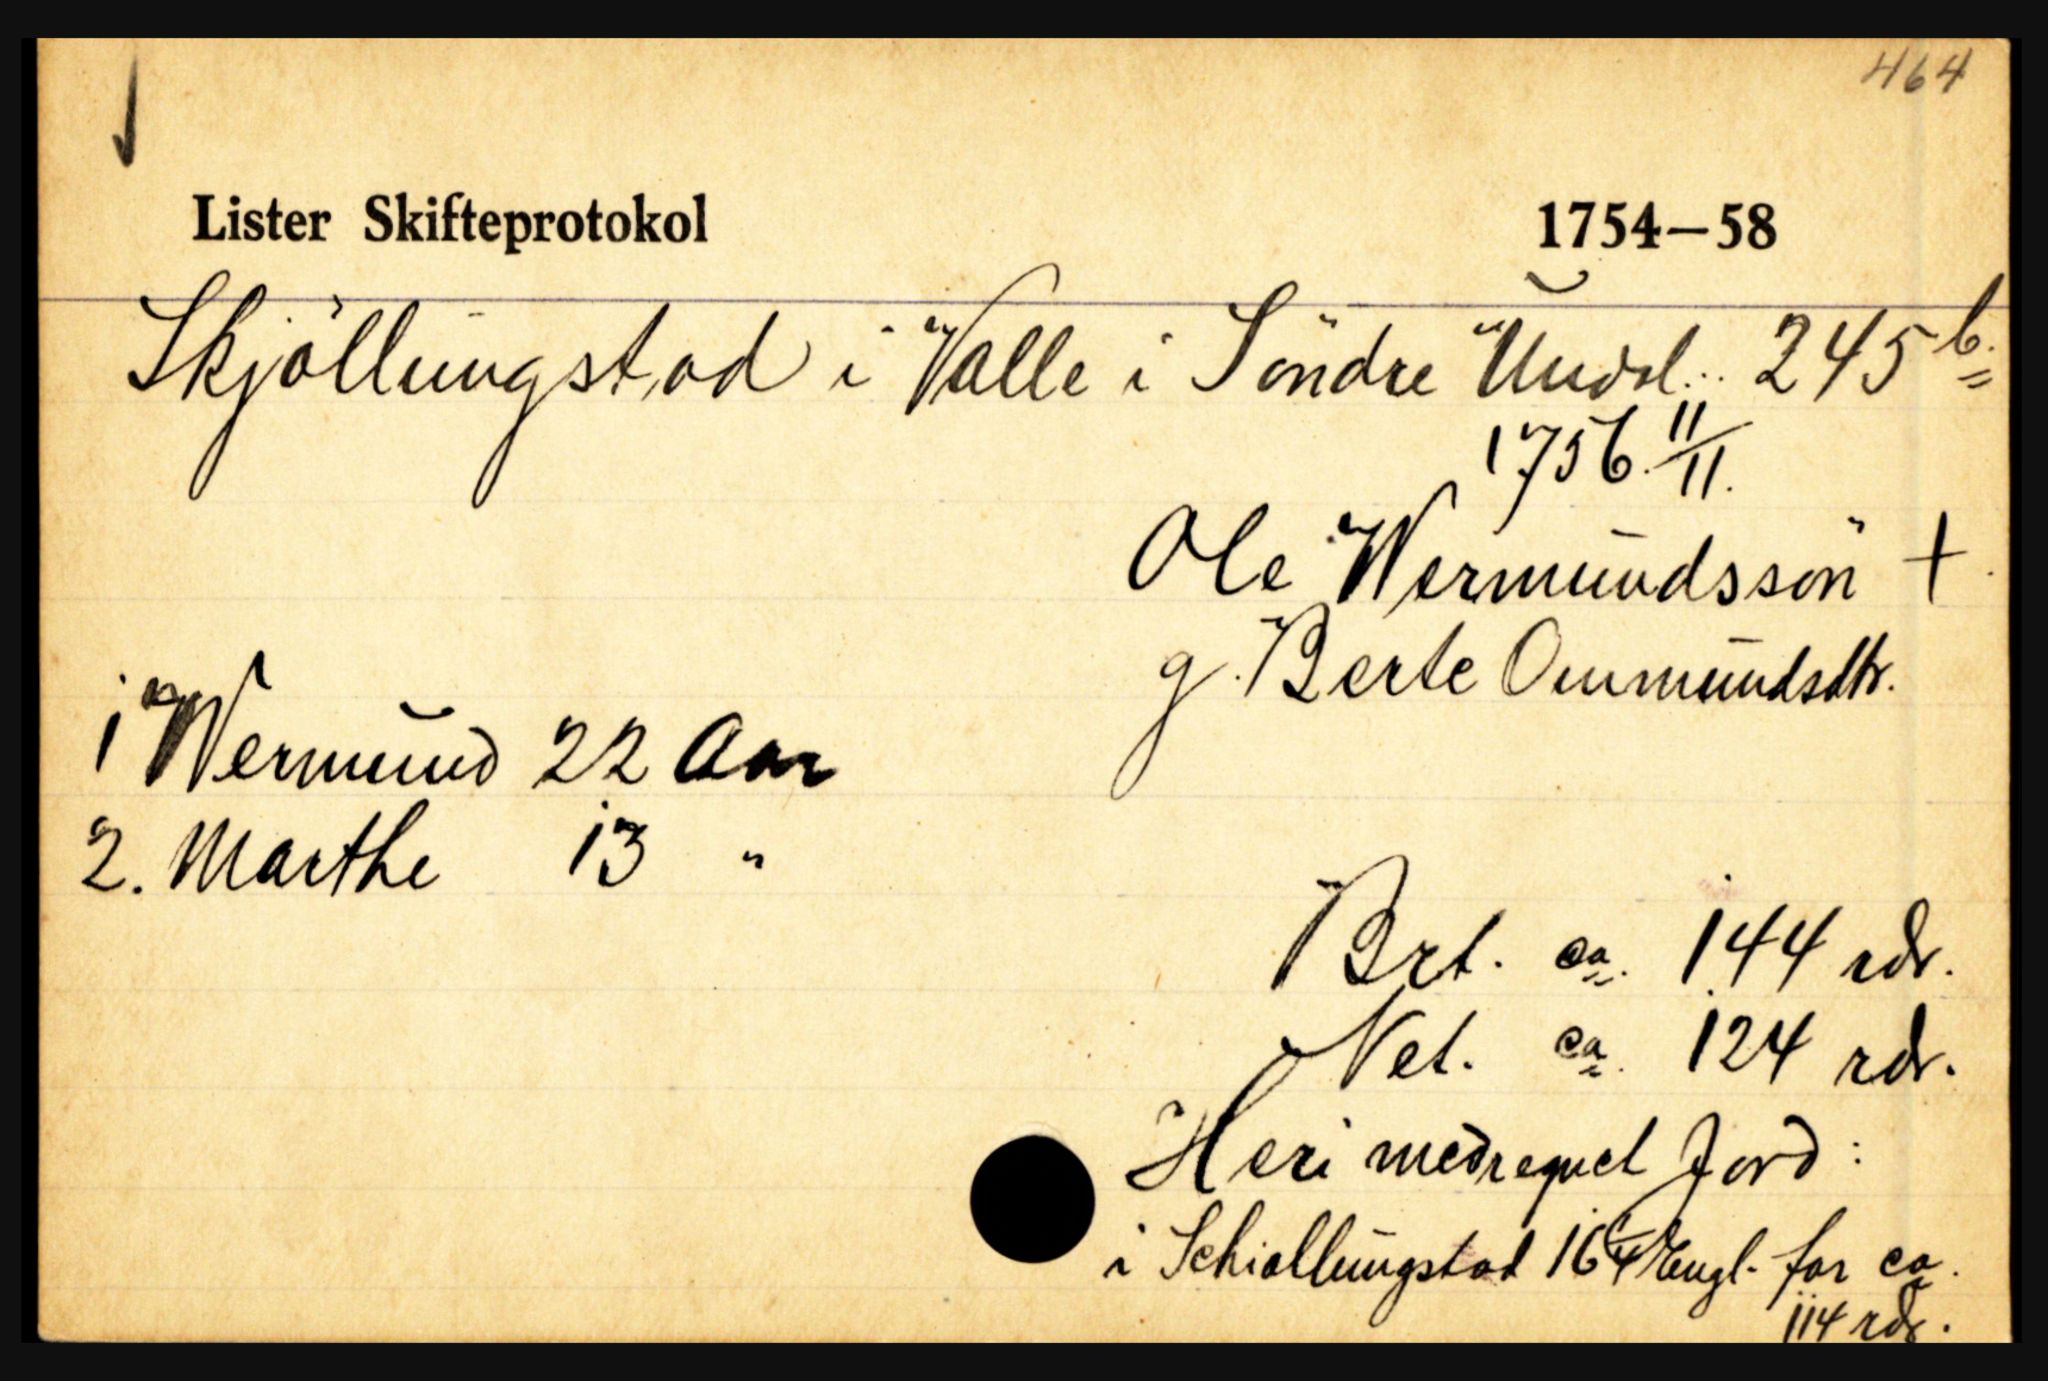 464
Lister Skifteprotokol 1754—58
Skjöllungstad i Valle i Söndre Undal.. 245 b.
1756 11/11.
Ole Wermundssön +
g. Berte Ommundsdtr.
1 Wermund 22 Aar
2. Marthe 13 "
Brt. ca. 144 rdr.
Net. ca. 124 rdr.
Heri medregnet Jord:
i Schiallungstad 16 1/4 Engl. for ca.
114 rdr.